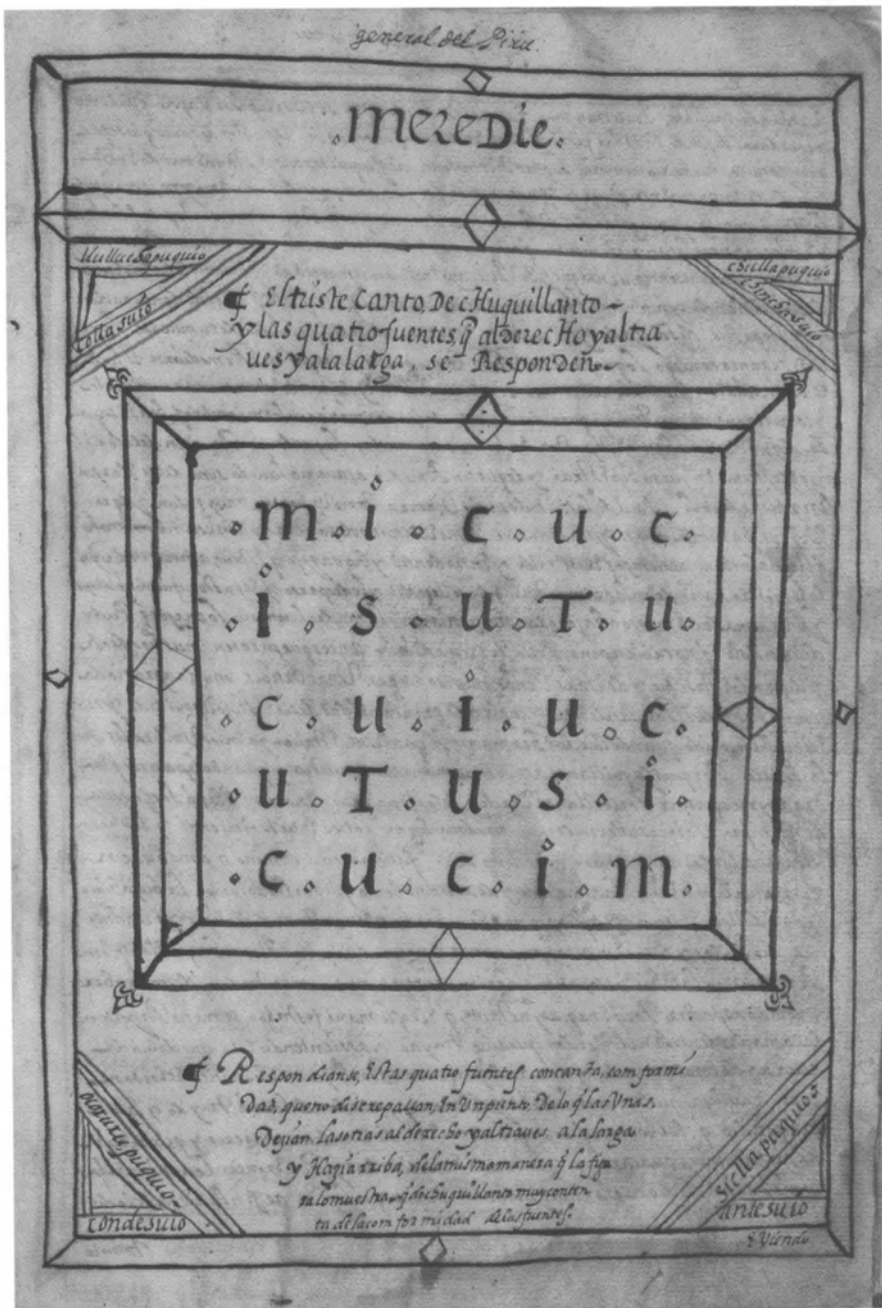 general del Piru.
.mereDie.
ullucchapuquio
collasuio
chicllapuquio
chinchasuio
¶ El triste Canto, De cHuquillanto
y las quatro fuentes, q̃ al derecHo y altra
ues y ala larga, se Responden.
.m.i.c.u.c.
.i.s.u.T.u.
.c.u.i.u.c.
.u.T.u.s.i.
.c.u.c.i.m.
¶ Respondianse, Estas quatro fuentes con tanta, comformi
dad, que no discrepauan, En Un punto, De lo q̃ las Unas.
Dezian. las otras al derecho y altraues, a la larga
y Hazia rriba, de la misma manera q̃ la figu
ra lo muestra. q̃do chuquillanto muy conten
ta de la comformidad de las fuentes.
ocoruripuquio
condesuio
Siclla puquios
antesuio
y Uiendo